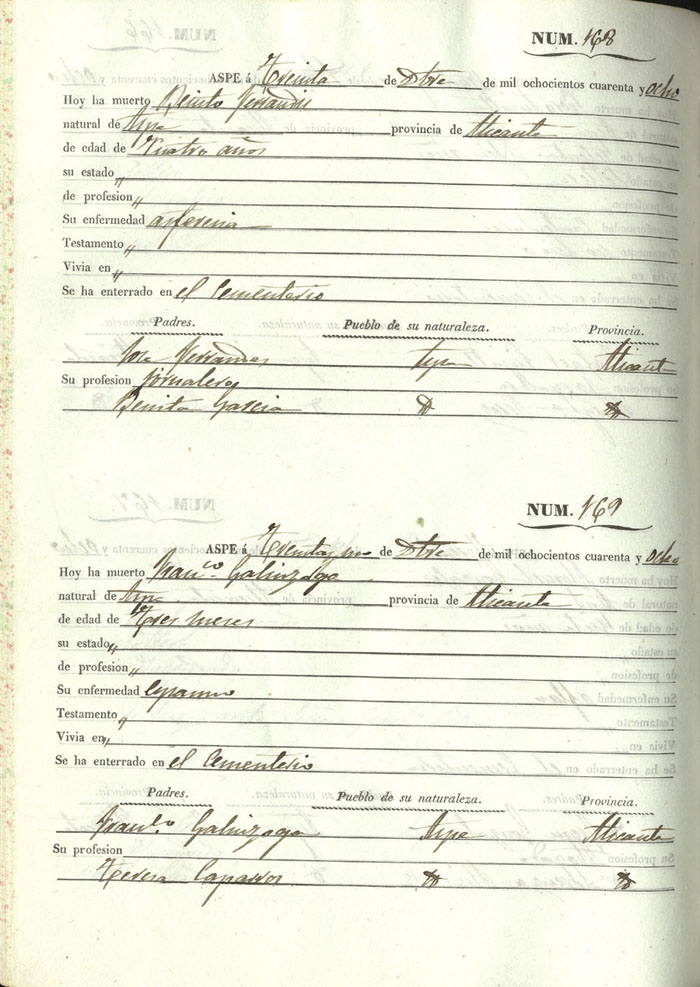 NUM. 168
ASPE á Treinta de Dbre de mil ochocientos cuarenta y ocho
Hoy ha muerto Benito
natural de Aspe provincia de Alicante
de edad de Cuatro años
su estado „
de profesion „
Su enfermedad
Testamento „
Vivia en „
Se ha enterrado en el Cementerio
Padres. Pueblo de su naturaleza. Provincia.
Aspe Alicante
Su profesion jornalero
Benita Garcia
NUM. 169
ASPE á Treinta y uno de Dbre de mil ochocientos cuarenta y ocho
Hoy ha muerto Fran.co Galinzoga
natural de Aspe provincia de Alicante
de edad de Tres meses
su estado „
de profesion „
Su enfermedad
Testamento „
Vivia en „
Se ha enterrado en el Cementerio
Padres. Pueblo de su naturaleza. Provincia.
Fran.co Galinzoga Aspe Alicante
Su profesion
Teresa